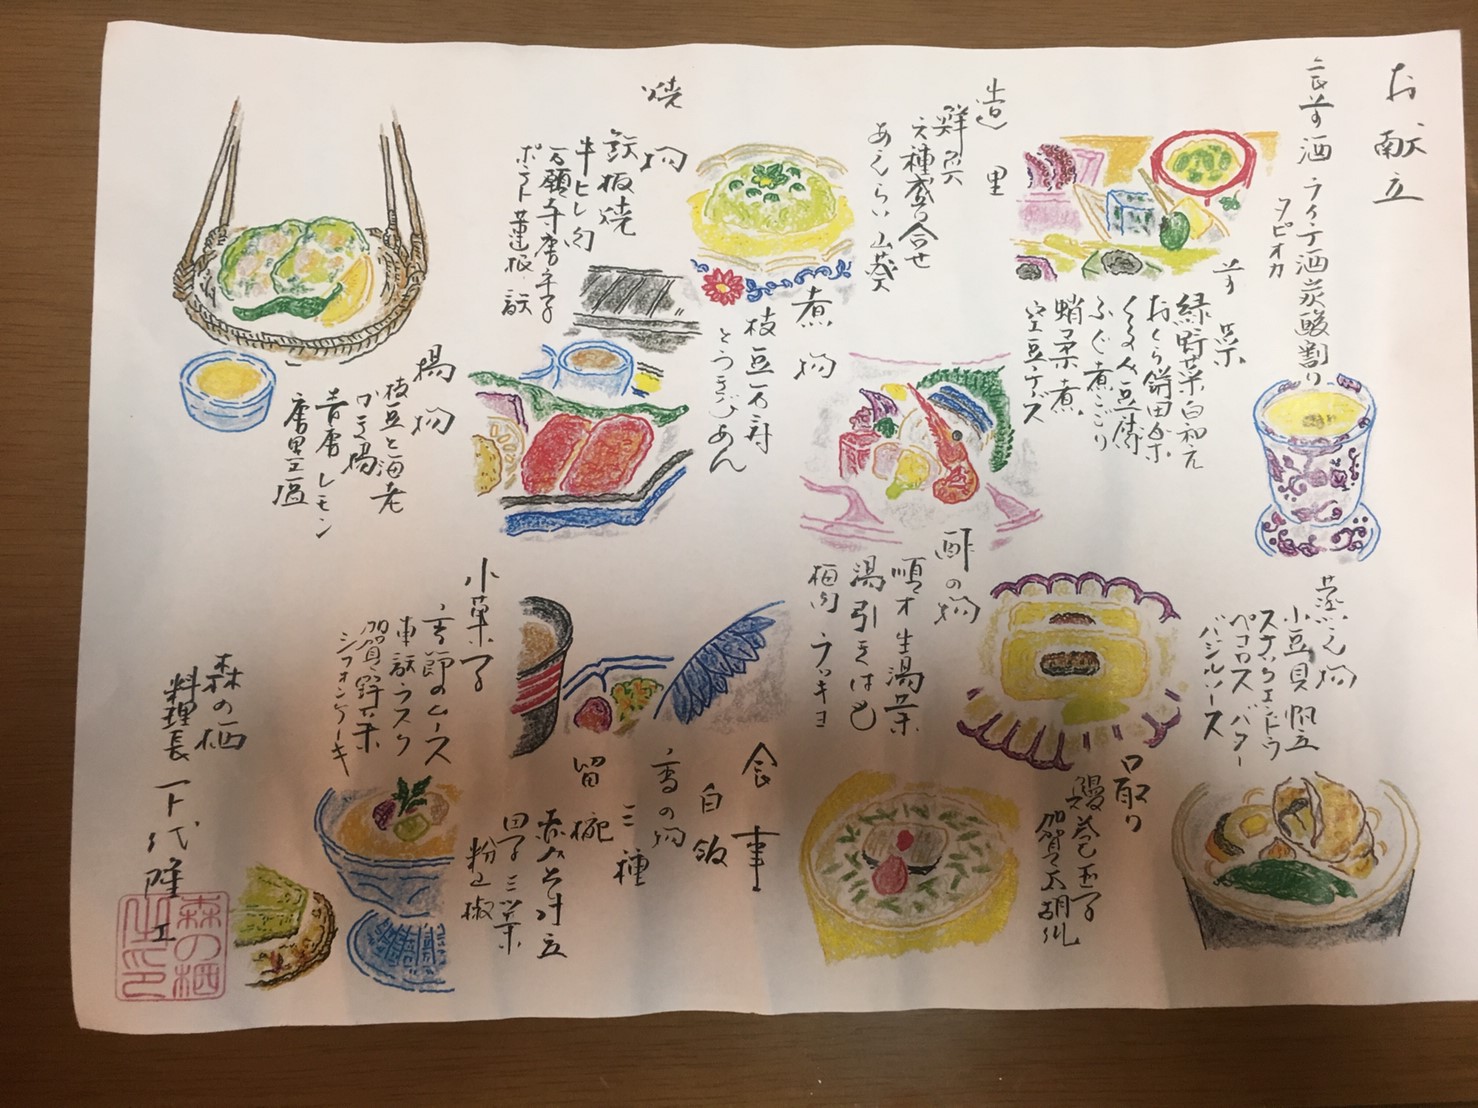 お献立
食前酒 ライチ酒炭酸割り
タピオカ
前菜
緑野菜白和え
おくら餅田楽
くるみ豆腐
ふぐ煮こごり
蛸柔煮
空豆チーズ
造里
鮮魚
六種盛合せ
あしらい山葵
煮物
枝豆万寿
とうきびあん
焼物
鉄板焼
牛ヒレ肉
万願寺唐辛子
ポテト 蓮根
揚物
枝豆と海老
かき揚
青唐 レモン
蒸し物
小豆貝 帆立
スナックエンドウ
ペコロス バター
バジルソース
口取り
鰻巻玉子
加賀太胡瓜
酢の物
順才 生湯葉
湯引きはも
梅肉 ラッキョ
食事
白飯
香の物
三種
留椀
赤みそ汁
三つ葉
粉山椒
小菓子
ムース
ラスク
加賀野菜
シフォンケーキ
森の栖
料理長 下代隆
森の栖
之印